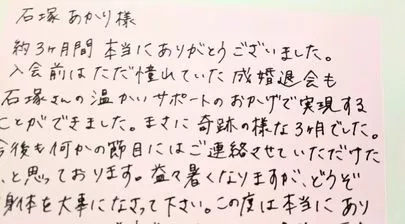 石塚 あかり 様
約3ヶ月間 本当にありがとうございました。
入会前はただ憧れていた成婚退会も
石塚さんの温かいサポートのおかげで実現する
ことができました。まさに奇跡の様な3ヶ月でした。
今後も何かの節目にはご連絡させていただけた
、と思っております。益々暑くなりますが、どうぞ
身体を大事になさって下さい。この度は本当にあり